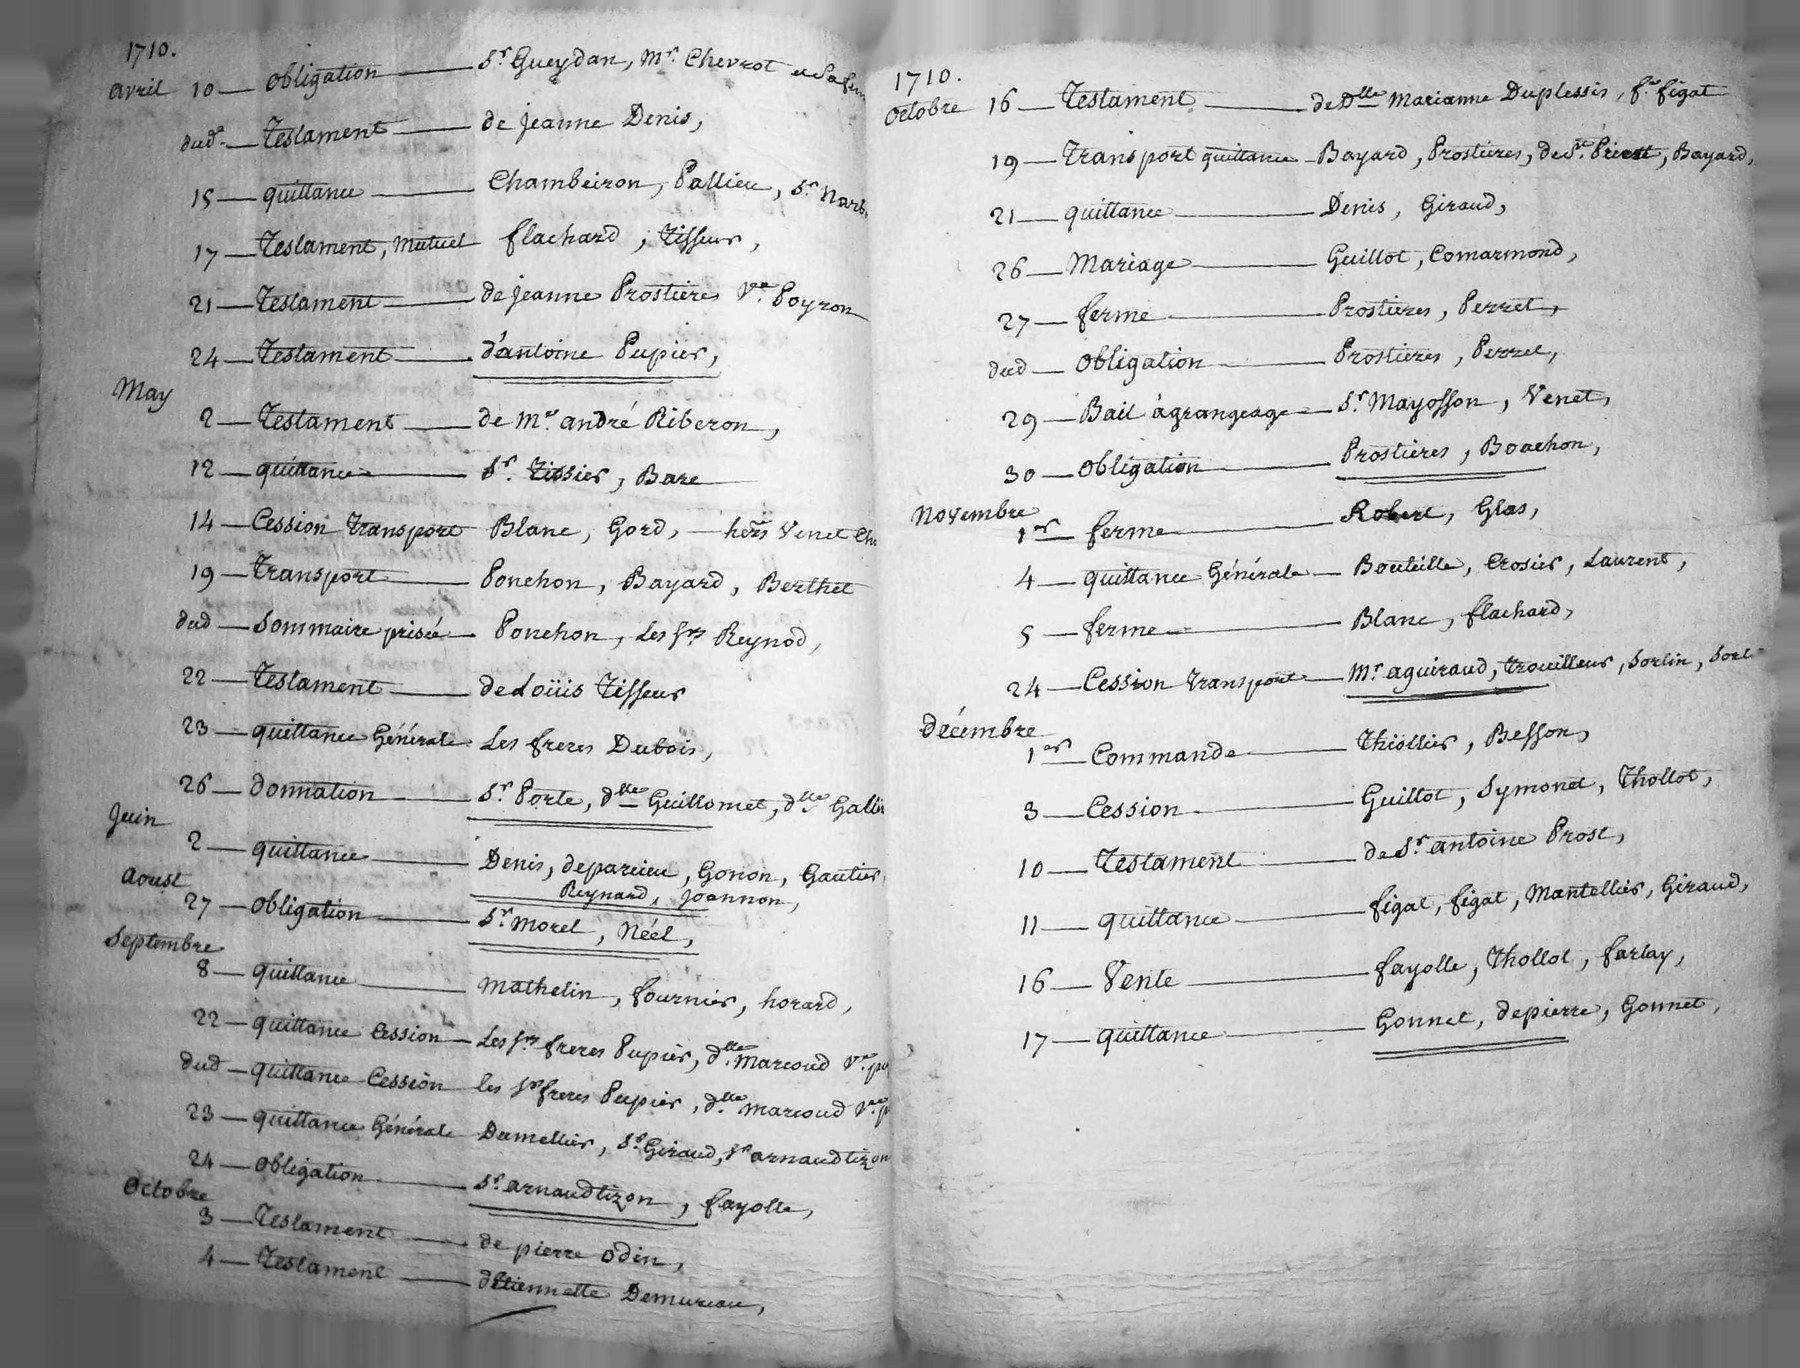 1710.
avril 10 — obligation — Sr. Gueydan, Mr. Chevrot et sa fem
dud. — Testament — de jeanne Denis,
15 — quittance — Chambeiron, Pallieu, Sr. Narb
17 — Testament, Mutuel flachard, Tisseur,
21 — Testament — de jeanne Prostieres Ve. Poyron
24 — Testament — d'antoine Pupier,
May
2 — Testament — de Mr. andré Riberon,
12 — quittance — Sr. Tissier, Bare
14 — Cession Transport Blanc, Gord, — hers Venet Cha
19 — Transport — Ponchon, Bayard, Berthet
dud — Sommaire prisée — Ponchon, Les Srs Reynod,
22 — Testament — de Loüis Tisseur
23 — quittance Générale Les freres Dubois,
26 — donnation — Sr. Porte, dlle Guillomet, dlle Galli
Juin
2 — quittance — Denis, deparcieu, Gonon, Gautier,
Reynard, Joannon,
Aoust
27 — obligation — Sr. Morel, Néel,
Septembre
8 — quittance — Mathelin, fournier, horard,
22 — quittance Cession — Les Srs freres Pupier, dlle. Marcoud Ve. pu
dud — quittance Cession les Srs freres Pupier, dlle. Marcoud Ve. p
23 — quittance Générale Dumellier, Sr. Giraud, Sr arnaudtizon
24 — obligation — Sr. arnaudtizon, fayolle,
Octobre
3 — Testament — de pierre odin,
4 — Testament — d'Etiennette Demureau,
1710.
Octobre 16 — Testament — de Dlle Marianne Duplessis, fe. figat
19 — Transport quittance — Bayard, Prostieres, de Sr. Priest, Bayard,
21 — quittance — Denis, Giraud,
26 — Mariage — Guillot, Comarmond,
27 — ferme — Prostieres, Perret,
dud — obligation — Prostieres, Perret,
29 — Bail à grangeage — Sr. Mayosson, Venet,
30 — obligation — Prostieres, Boachon,
Novembre
1er — ferme — Robert, Glas,
4 — quittance Générale — Bouteille, Crosier, Laurent,
5 — ferme — Blanc, flachard,
24 — Cession Transport — Mr aguiraud, Trouilleur, Sorlin, Sorl
Décembre
1er — Commande — Thiollier, Besson,
3 — Cession — Guillot, Symond, Thollot,
10 — Testament — de Sr. antoine Prost,
11 — quittance — figat, figat, Mantellier, Giraud,
16 — Vente — fayolle, Thollot, farlay,
17 — quittance — Gonnet, depierre, Gonnet,